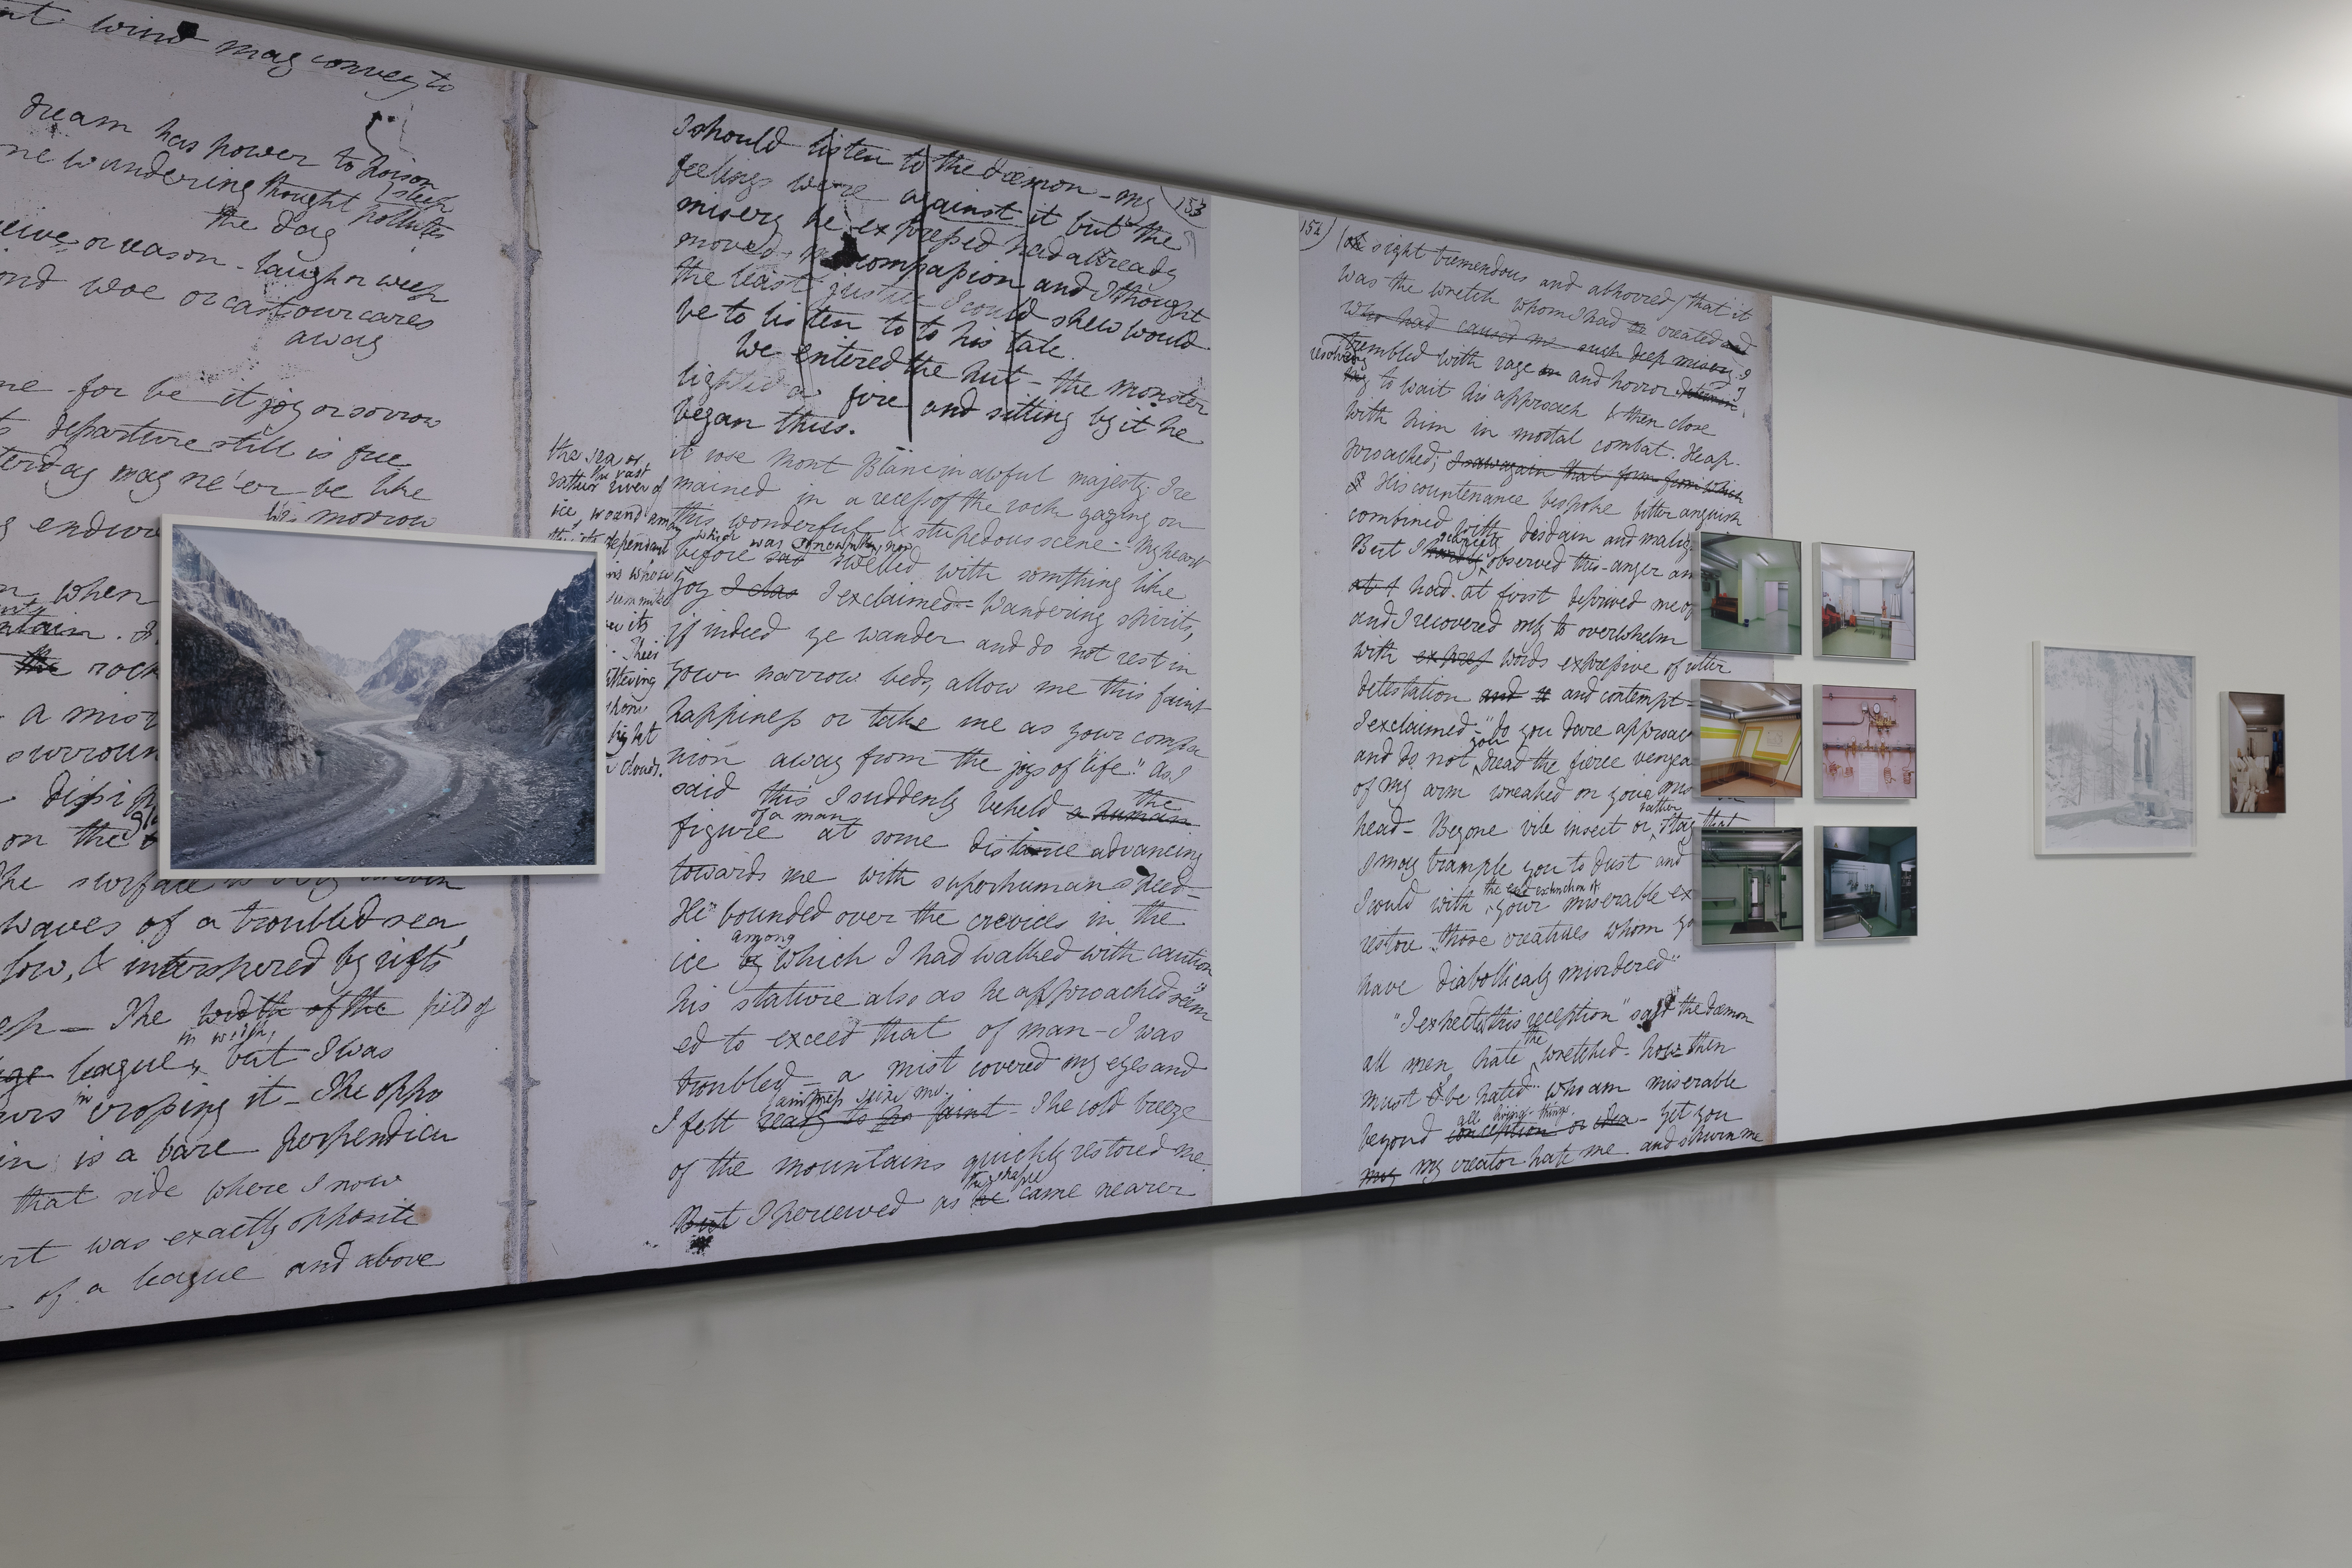 wind may convey to
dream has power to poison
sleep
ne wandering thought pollutes
the day
or reason - laugh or weep
ond woe or cast our cares
away
me for be it joy or sorrow
departure still is free
may ne'er be like
his morrow
endure
when
rock
a mist
surroun
on the
The surface
waves of a troubled sea,
low, & interspered by rifts
The width of the field of
in width,
league, but I was
urs in croping it - The oppo
in is a bare perpendicu
that side where I now
was exactly opposite
of a league and above
153
I should listen to the dæmon - my
feelings were against it but the
misery he expressed had already
moved my compassion and I thought
the least justice I could shew would
be to listen to to his tale.
We entered the hut - the monster
lighted a fire and sitting by it he
began thus.
the sea or
the vast
rather river of
ice wound among
dependant
whose
its
light
clouds.
it rose Mont Blanc in awful majesty. I re
mained in a recess of the rock gazing on
this wonderful & stupedous scene - My heart
which was now
before sad swelled with somthing like
joy I clas I exclaimed - Wandering spirits,
if indeed ye wander and do not rest in
your narrow beds, allow me this faint
happiness or take me as your compa
nion away from the joys of life." As I
said this I suddenly beheld a human the
figure of a man at some distance advancing
towards me with superhuman speed -
He bounded over the crevices in the
among
ice by which I had walked with caution
his stature also as he approached seem
ed to exceed that of man - I was
troubled - a mist covered my eyes and
faintness seize me.
I felt ready to faint - The cold breeze
of the mountains quickly restored me.
the shape
But I percieved as he came nearer
154
(oh sight tremendous and abhorred) that it
was the wretch whom I had created and
who had caused me such deep misery. I
trembled with rage and horror
resolving
to wait his approach & then close
with him in mortal combat. He ap-
proached; I saw again that form from which
His countenance bespoke bitter anguish
combined with disdain and malig
But I scarcely observed this - anger an
had at first deprived me of
and I recovered only to overwhelm
with expres words expressive of utter
detestation and and contempt -
I exclaimed - "do you dare approac
and do not you dread the fierce vengea
of my arm wreaked on your mis
rather
head - Begone vile insect or stay that
I may trample you to dust and
the extinction of
I could with your miserable ex
restore those creatures whom yo
have diabolically murdered"
"I expected this reception" said the dæmon
all men hate the wretched - how then
must I be hated who am miserable
all living things.
beyond conception or idea - Yet you
my my creator hate me and shun me